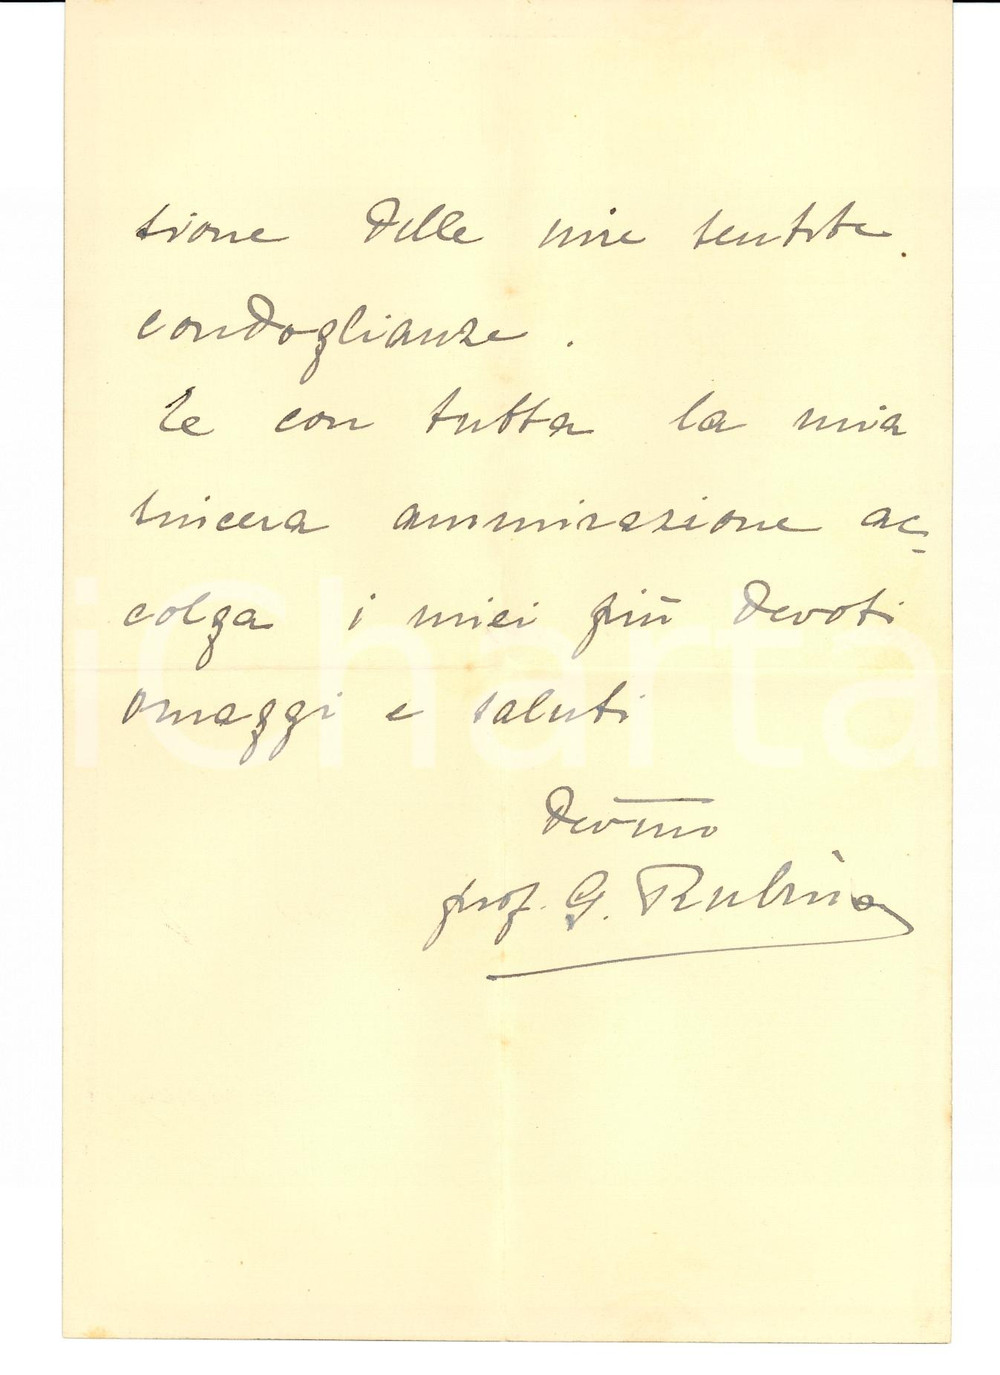 sione delle mie sentite
condoglianze.
Ee con tutta la mia
sincera ammirazione ac-
colga i miei più devoti
omaggi e saluti
Devmo
prof. G. Rubino
iCharta